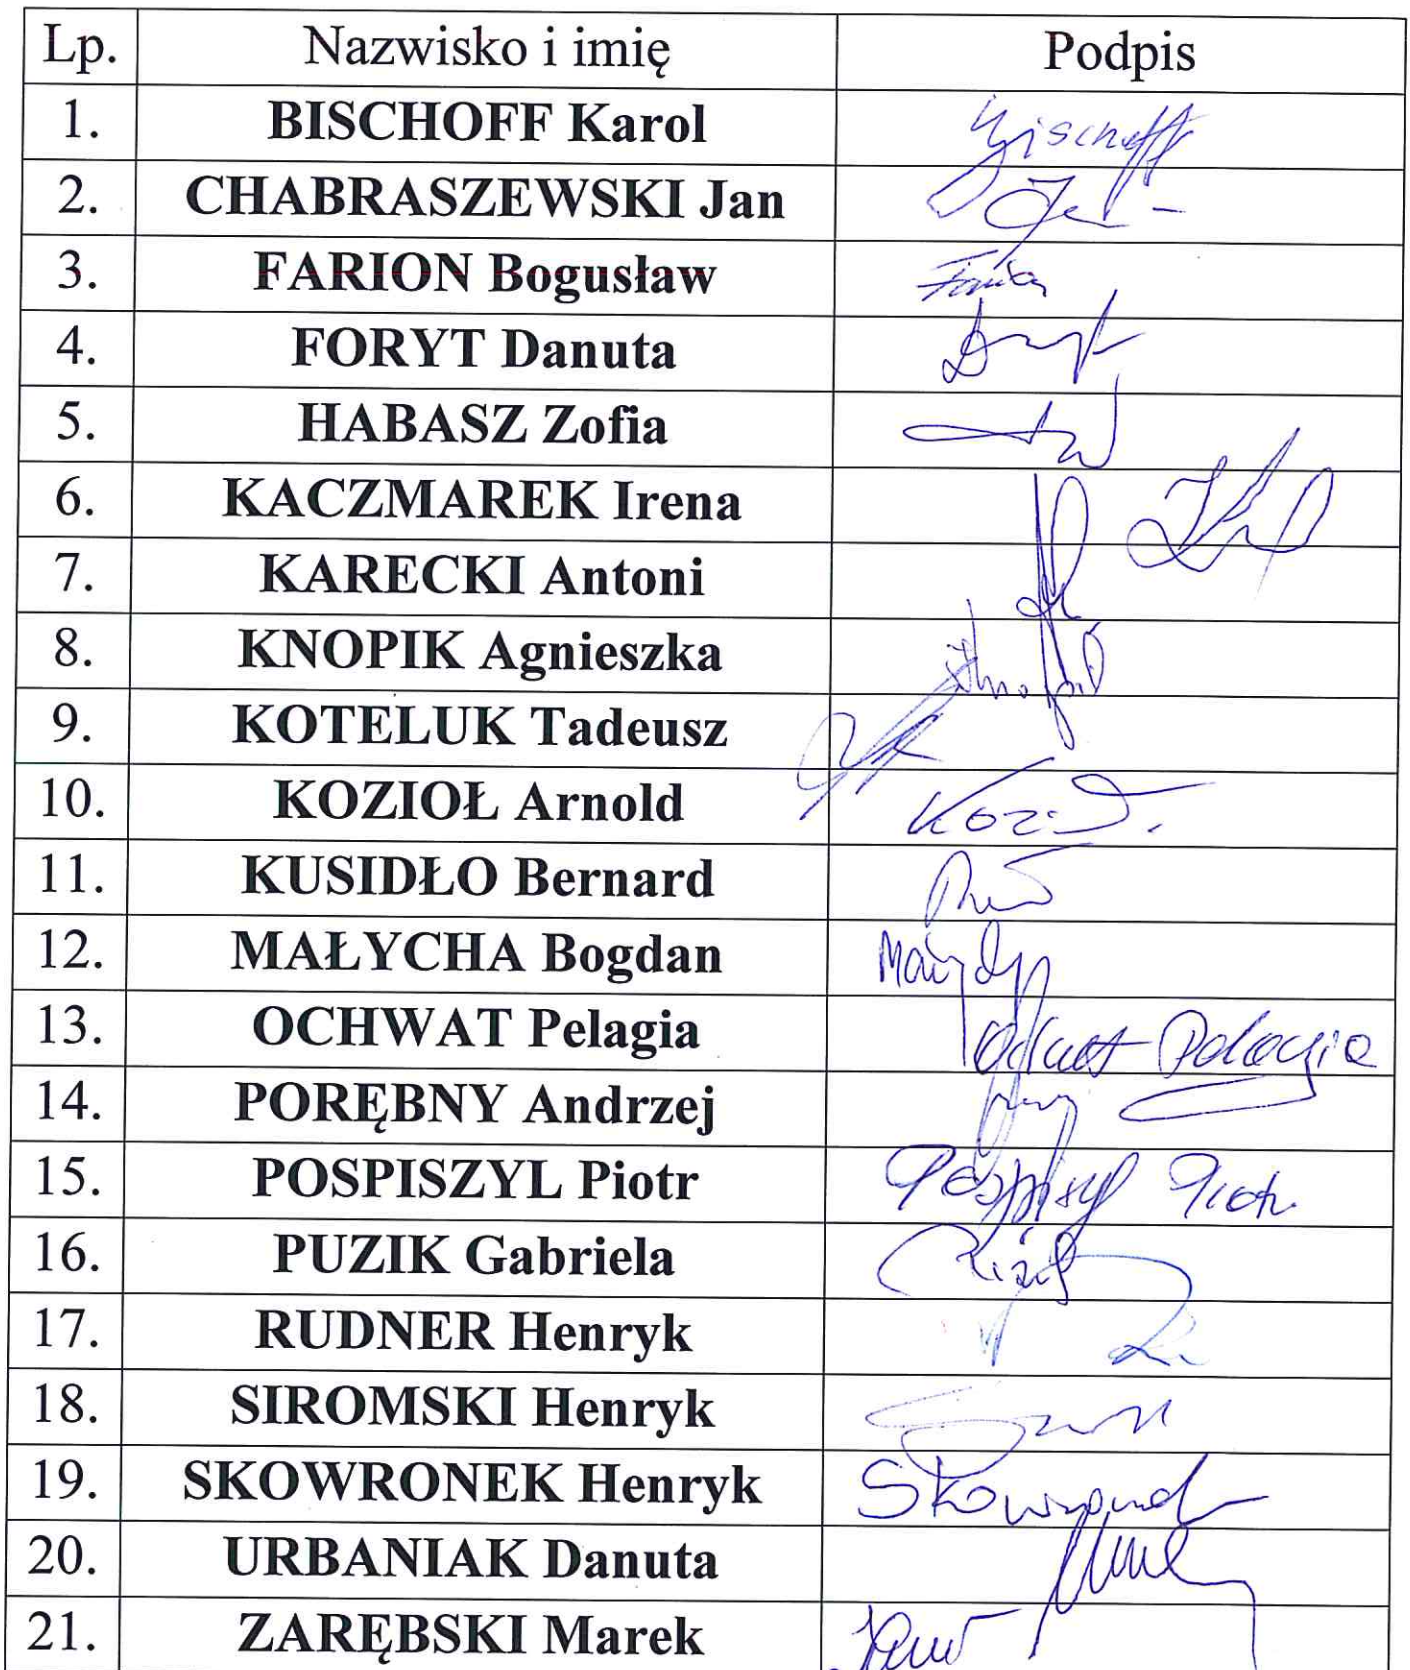 Lp. Nazwisko i imię Podpis
1. BISCHOFF Karol Bischoff
2. CHABRASZEWSKI Jan
3. FARION Bogusław
4. FORYT Danuta
5. HABASZ Zofia
6. KACZMAREK Irena
7. KARECKI Antoni
8. KNOPIK Agnieszka
9. KOTELUK Tadeusz
10. KOZIOŁ Arnold
11. KUSIDŁO Bernard
12. MAŁYCHA Bogdan
13. OCHWAT Pelagia Ochwat Pelagia
14. PORĘBNY Andrzej
15. POSPISZYL Piotr Pospiszyl Piotr
16. PUZIK Gabriela
17. RUDNER Henryk
18. SIROMSKI Henryk
19. SKOWRONEK Henryk Skowronek
20. URBANIAK Danuta
21. ZARĘBSKI Marek